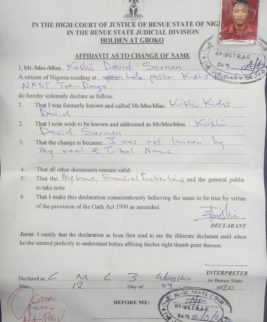 IN THE HIGH COURT OF JUSTICE OF BENUE STATE OF NIG
IN THE BENUE STATE JUDICIAL DIVISION
HOLDEN AT GBOKO
AFFIDAVIT AS TO CHANGE OF NAME
I, Mr./Mrs./Miss: Kiishi David Sornan
A citizen of Nigeria residing at late pastor Kiishi's
NKST
do hereby solemnly declare as follow:
1. That I was formerly known and called Mr/Mrs/Miss: Kiishi
David
2. That I now wish to be known and addressed as Mr/Mrs/Miss: Kiishi
David Sornan
3. That the change is because: I was not known by
My real & Tribal Name
4. That all other documents remain valid.
5. That the Financial Institutions and the general public
to take note
6. That I make this declaration conscientiously believing the same to be true by virtue
of the provision of the Oath Act 1990 as amended.
DECLARANT
Jurat: I certify that the declaration as been first read to me the illiterate declarant until when
he/she seemed perfectly to understand before affixing his/her right thumb print thereon.
INTERPRETER
Declared at in Benue State
Dated 12 Day of 07
BEFORE ME: